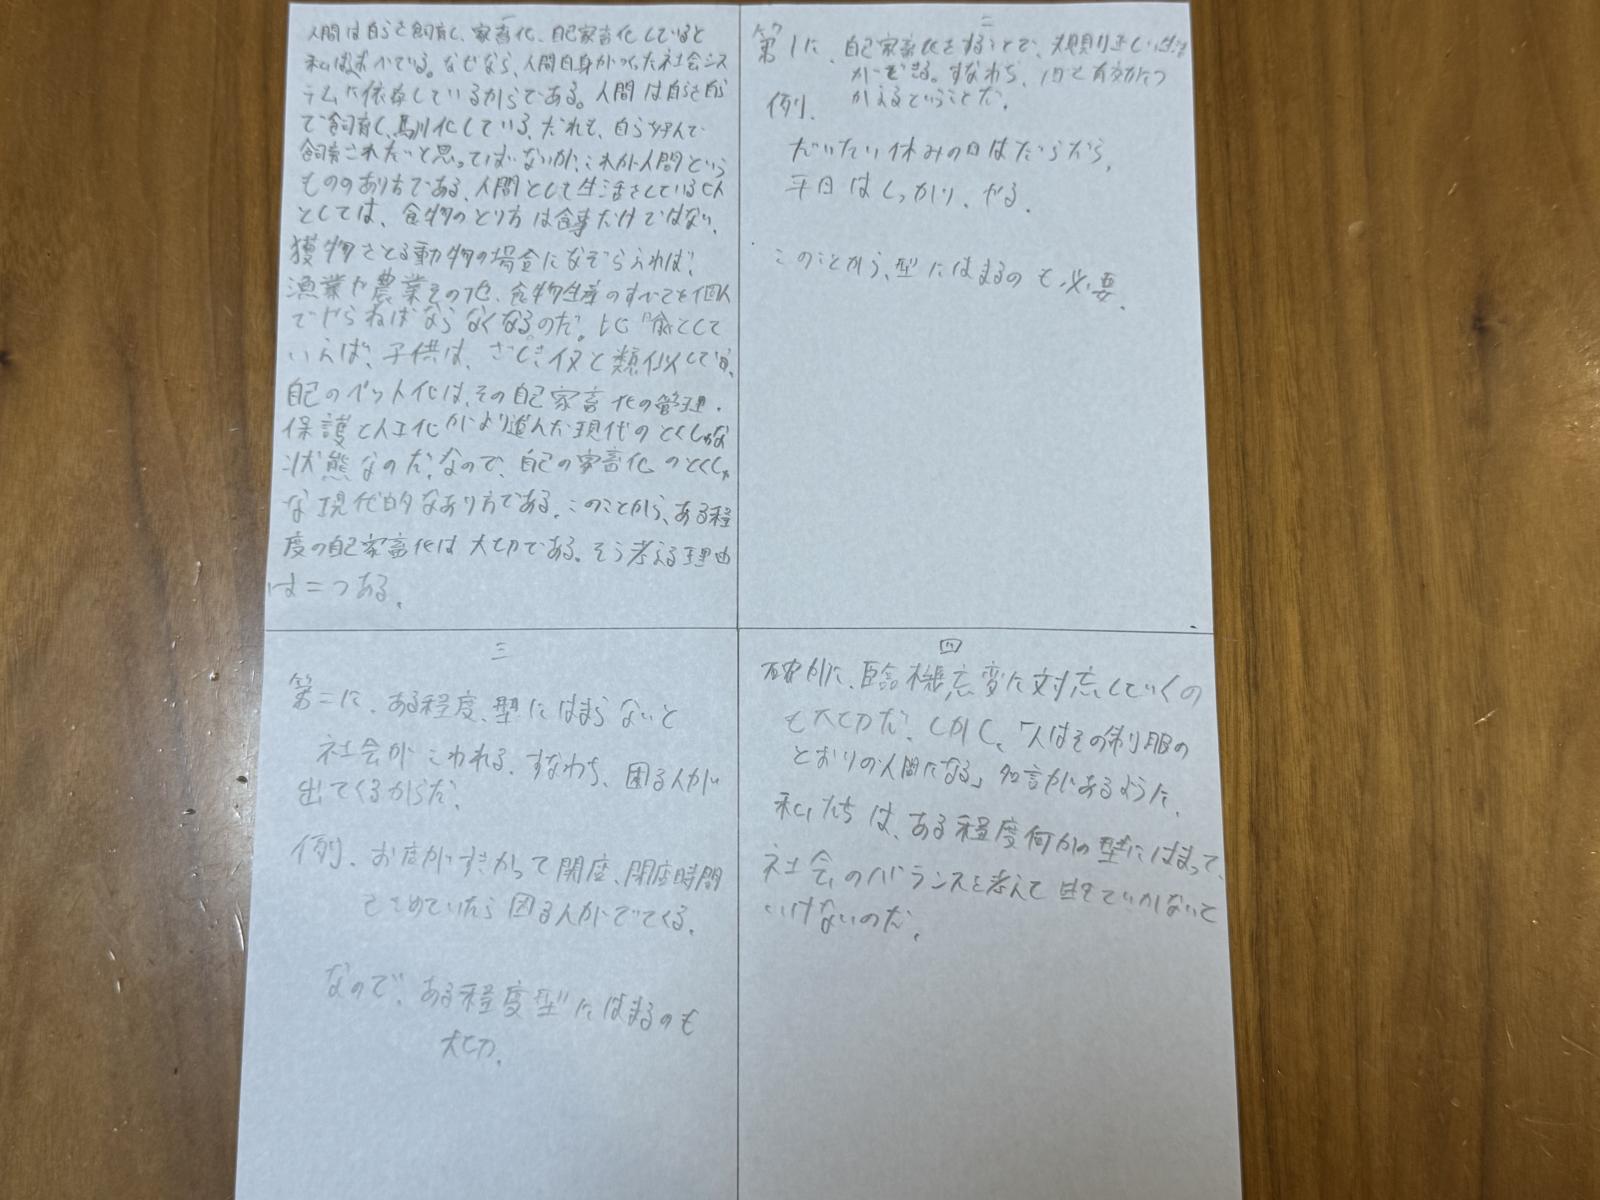 一
人間は自らを飼育し、家畜化、自己家畜化していると
私は述べている。なぜなら、人間自身がつくった社会シス
テムに依存しているからである。人間は自らを自ら
で飼育し、馴化している。だれも、自ら好んで
飼育されたいと思ってはいないが、これが人間という
もののあり方である。人間として生活をしているヒト
としては、食物のとり方は食事だけではない。
獲物をとる動物の場合になぞらえれば、
漁業や農業その他、食物生産のすべてを個人
でやらねばならなくなるのだ。比喩として
いえば、子供は、さしき犬と類似している。
自己のペット化は、その自己家畜化の管理・
保護と人工化がより進んだ現代のとくしゅな
状態なのだ。なので、自己の家畜化のとくしゅ
な現代的なあり方である。このことから、ある程
度の自己家畜化は大切である。そう考える理由
は二つある。
二
第1に、自己家畜化をすることで、規則正しい生活
ができる。すなわち、1日を有効につ
かえるということだ。
例.
だいたい休みの日はだらだら、
平日はしっかり、やる。
このことから、型にはまるのも必要。
三
第二に、ある程度、型にはまらないと
社会がこわれる。すなわち、困る人が
出てくるからだ。
例. お店がすきかって開店、閉店時間
をきめていたら困る人がでてくる。
なので、ある程度型にはまるのも
大切。
四
確かに、臨機応変に対応していくの
も大切だ。しかし、「人はその制服の
とおりの人間になる」名言があるように、
私たちは、ある程度何かの型にはまって、
社会のバランスを考えて生きていかないと
いけないのだ。